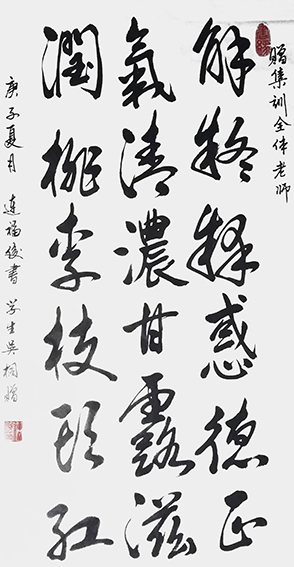 赠集训全体老师
解疑释惑德正
氣清濃甘露滋
潤桃李枝頭红
庚子夏月 連福俊書 学生吴桐赠